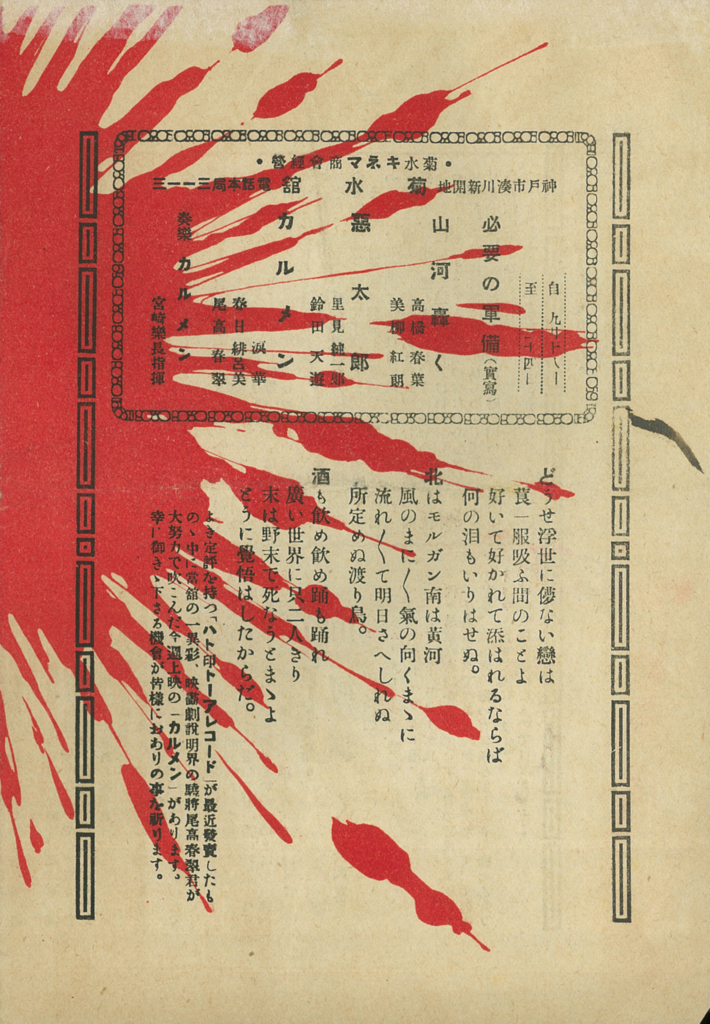 ・菊水キネマ商會經營・
神戸市湊川新開地 菊水舘 電話本局三一一三
自 九月廿八日
至 十月四日
必要の軍備(實寫)
山河轟く
高橋春葉
美柳紅朗
惡太郎
里見純一郎
鈴田天遊
カルメン
淚華
春日緋呂美
尾高春翠
奏樂 カルメン
宮崎樂長指揮
どうせ浮世に儚ない戀は
莨一服吸ふ間のことよ
好いて好かれて添はれるならば
何の泪もいりはせぬ。
北はモルガン南は黃河
風のまに〱氣の向くまゝに
流れ〱て明日さへしれぬ
所定めぬ渡り鳥。
酒も飮め飮め踊も踊れ
廣い世界に只二人きり
末は野末で死なうとまゝよ
どうに覺悟はしたからだ。
よき定評を持つ「ハト印トーアレコード」が最近發賣したも
のゝ中に當舘の一異彩、映畵劇說明界の驍將尾高春翠君が
大努力で吹こんだ今週上映の「カルメン」があります。
幸に御きゝ下さる機會が皆樣におありの事を祈ります。